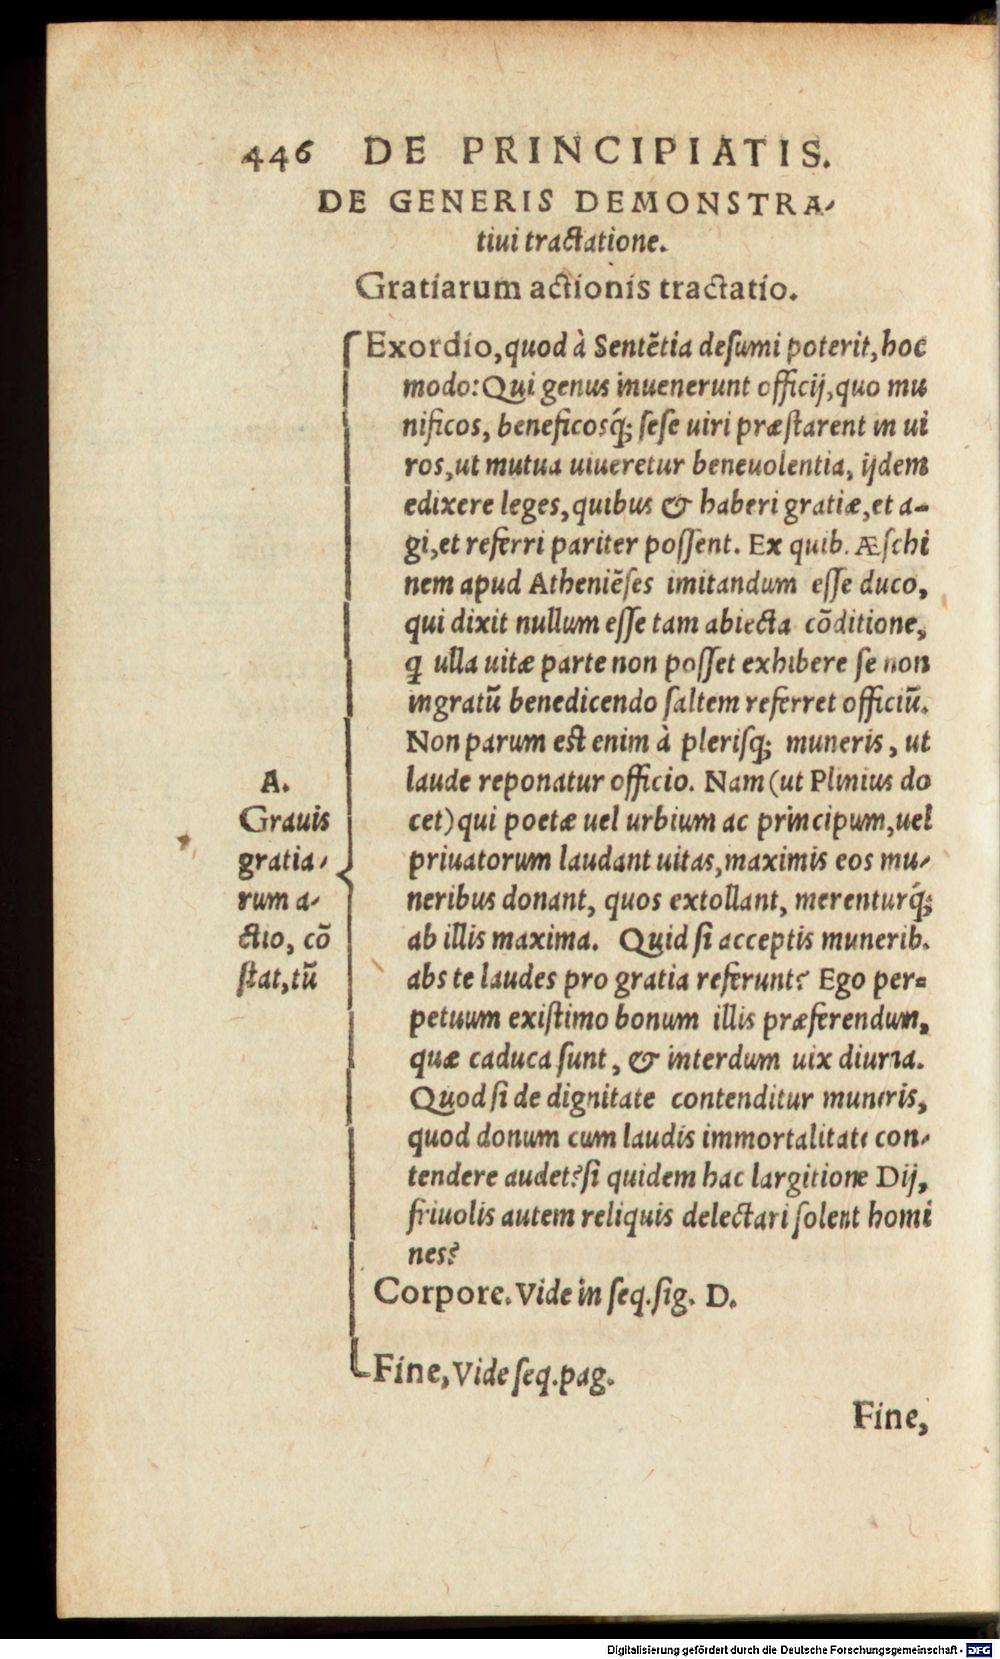 446 DE PRINCIPIATIS.
DE GENERIS DEMONSTRA-
tiui tractatione.
Gratiarum actionis tractatio.
Exordio, quod à Sentẽtia deſumi poterit, hoc
modo: Qui genus inuenerunt officij, quo mu
nificos, beneficosq́; ſeſe uiri præſtarent in ui
ros, ut mutua uiueretur beneuolentia, ijdem
edixere leges, quibus & haberi gratiæ, et a-
gi, et referri pariter poſſent. Ex quib. Æſchi
nem apud Atheniẽſes imitandum eſſe duco,
qui dixit nullum eſſe tam abiecta cõditione,
q̃ ulla uitæ parte non poſſet exhibere ſe non
ingratũ benedicendo ſaltem referret officiũ.
Non parum est enim à pleriſq; muneris, ut
laude reponatur officio. Nam (ut Plinius do
cet) qui poetæ uel urbium ac principum, uel
priuatorum laudant uitas, maximis eos mu-
neribus donant, quos extollant, merenturq́;
ab illis maxima. Quid ſi acceptis munerib.
abs te laudes pro gratia referunt? Ego per-
petuum exiſtimo bonum illis præferendum,
quæ caduca ſunt, & interdum uix diurna.
Quod ſi de dignitate contenditur muneris,
quod donum cum laudis immortalitate con-
tendere audet? ſi quidem hac largitione Dij,
friuolis autem reliquis delectari ſolent homi
nes?
A.
Grauis
gratia-
rum a-
ctio, cõ
ſtat, tũ
Corpore. Vide in ſeq. ſig. D.
Fine, Vide ſeq. pag.
Fine,
Digitalisierung gefördert durch die Deutsche Forschungsgemeinschaft - DFG